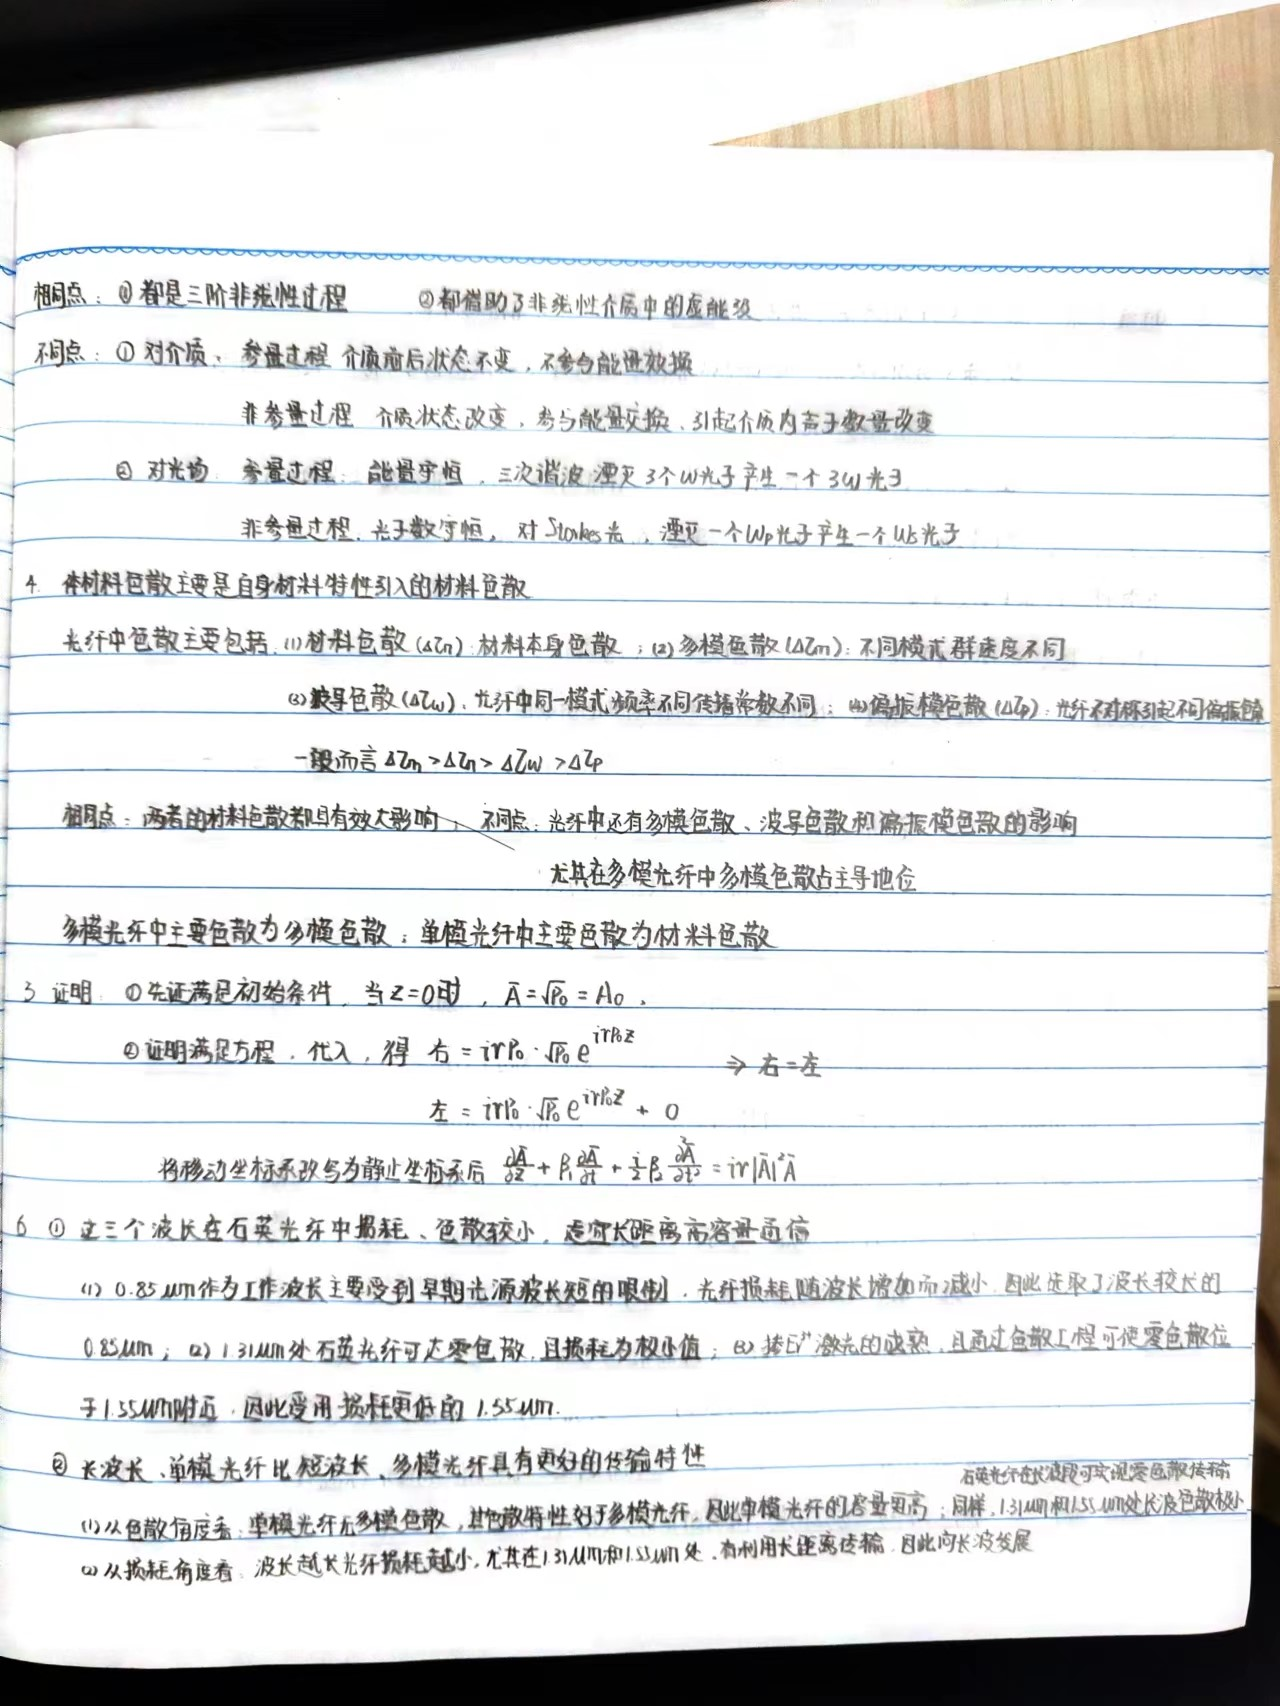 相同点：① 都是三阶非线性过程 ② 都借助了非线性介质中的虚能级
不同点：① 对介质、参量过程 介质前后状态不变，不参与能量交换
非参量过程 介质状态改变，参与能量交换、引起介质内声子数量改变
② 对光场 参量过程：能量守恒，三次谐波 湮灭3个W光子产生一个3W光子
非参量过程．光子数守恒，对Storkes光，湮灭一个Wp光子产生一个Ws光子
4. 体材料色散主要是自身材料特性引入的材料色散
光纤中色散主要包括．(1)材料色散(Δτn)：材料本身色散；(2)多模色散(Δτm)：不同模式群速度不同
(3)波导色散(Δτw)、光纤中同一模式频率不同传播常数不同；(4)偏振模色散(Δτp)：光纤不对称引起不同偏振
一般而言 Δτm > Δτn > Δτw > Δτp
相同点：两者的材料色散都具有较大影响；不同点：光纤中还有多模色散、波导色散和偏振模色散的影响
尤其在多模光纤中多模色散占主导地位
多模光纤中主要色散为多模色散；单模光纤中主要色散为材料色散
3 证明：①先证满足初始条件，当z=0时，Ā=√P₀=A₀．
②证明满足方程．代入，得 右=irP₀·√P₀e^{irP₀z} ⇒ 右=左
左=irP₀·√P₀e^{irP₀z} + 0
将移动坐标系改写为静止坐标系后 ∂Ā/∂z + β₁∂Ā/∂t + i/2 β₂ ∂²Ā/∂t² = ir|Ā|²Ā
6 ① 这三个波长在石英光纤中损耗、色散较小，适宜长距离高容量通信
(1) 0.85μm作为工作波长主要受到早期光源波长短的限制．光纤损耗随波长增加而减小．因此选取了波长较长的
0.85μm；(2) 1.31μm处石英光纤可达零色散，且损耗为极小值；(3) 掺Er³⁺激光的成熟，且通过色散工程可使零色散位
于1.55μm附近．因此受用损耗更低的1.55μm．
② 长波长、单模光纤比短波长、多模光纤具有更好的传输特性
石英光纤在长波段可实现零色散传输
(1)从色散角度看：单模光纤无多模色散，其色散特性好于多模光纤，因此单模光纤的容量更高；同样，1.31μm和1.55μm处长波色散极小
(2)从损耗角度看：波长越长光纤损耗越小，尤其在1.31μm和1.55μm处．有利用长距离传输．因此向长波发展